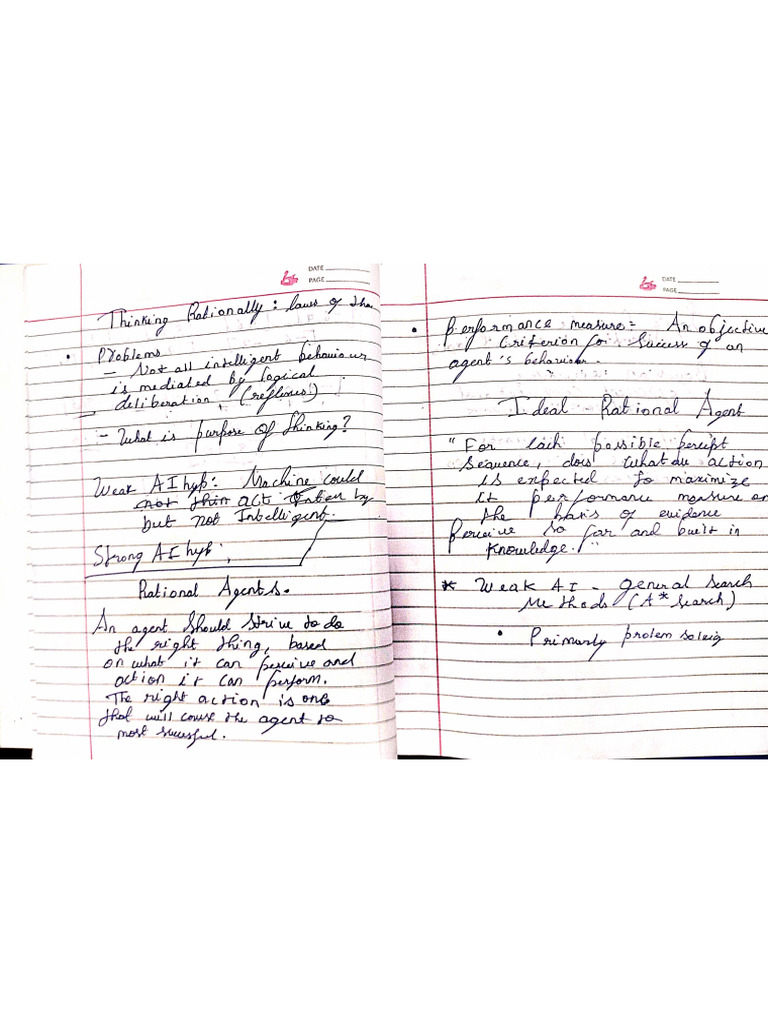 DATE
PAGE
Thinking Rationally : laws of tho
• Problems
– Not all intelligent behaviour
is mediated by logical
deliberation, (reflexes!)
– What is purpose of thinking?
Weak AI hyp: Machine could
not thin act by
but not Intelligent.
Strong AI hyp:
Rational Agents.
An agent should strive to do
the right thing, based
on what it can perceive and
action it can perform.
The right action is one
that will couse the agent to
most sucessful.
DATE
PAGE
• Performance measure = An objective
Criterion for success of an
agent's behaviour.
Ideal Rational Agent
"For lach possible percept
sequence, does whatau action
is expected to maximize
it performance measure on
the basis of evidence
Perceive so far and built in
knowledge."
* Weak AI – general search
Methods (A* search)
• Primarly prolem solvig